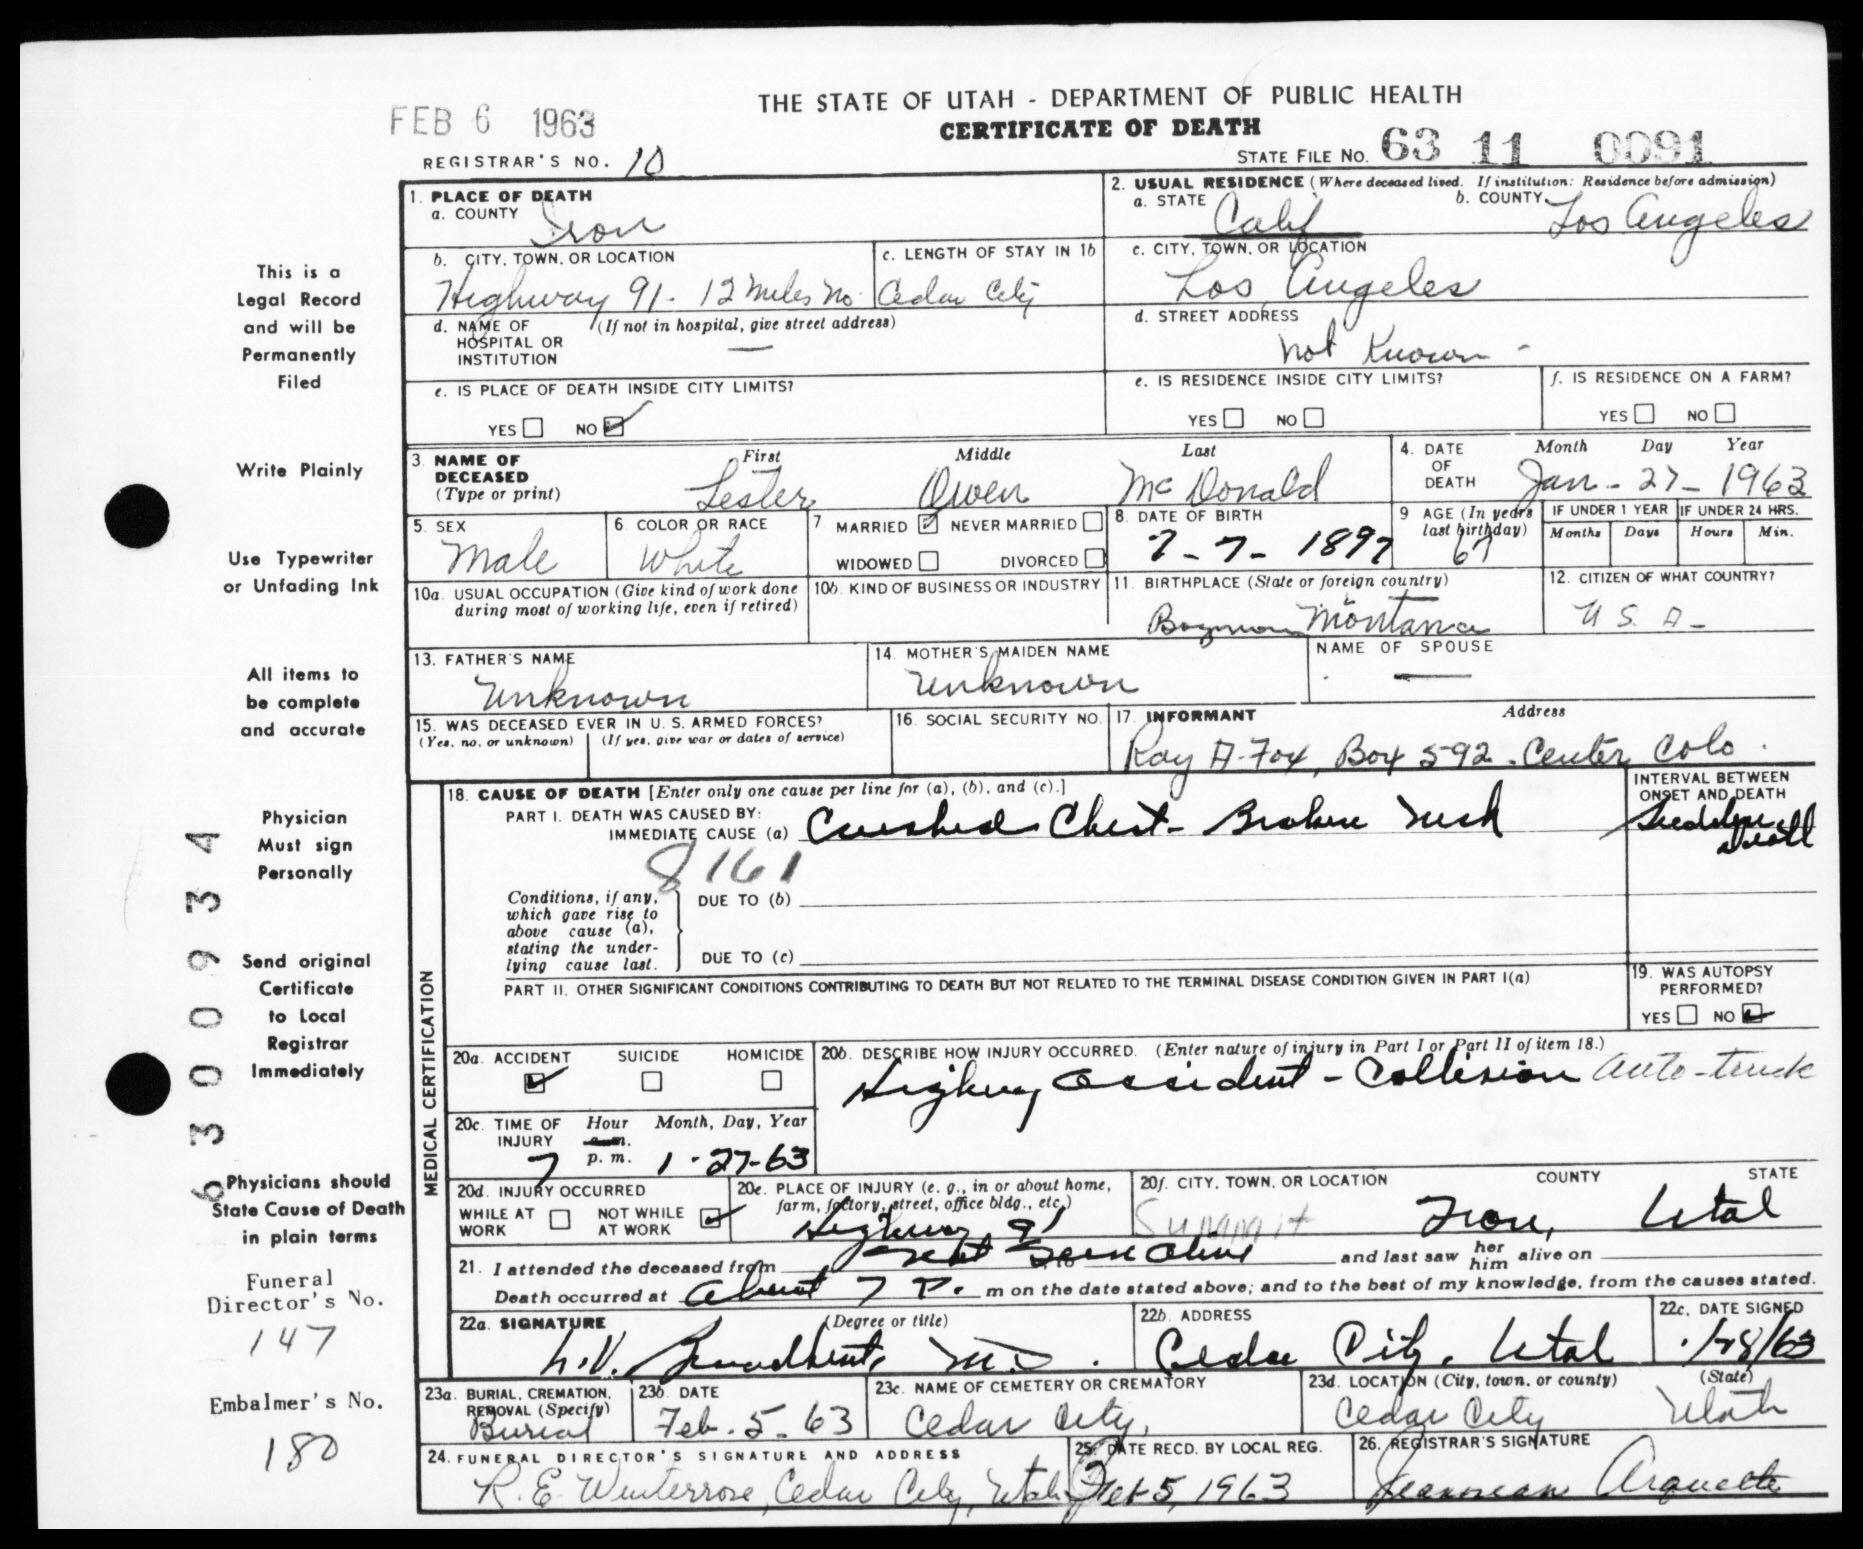 FEB 6 1963
THE STATE OF UTAH - DEPARTMENT OF PUBLIC HEALTH
CERTIFICATE OF DEATH
REGISTRAR'S NO. 10
STATE FILE NO. 63 11 0091
1. PLACE OF DEATH
a. COUNTY Iron
2. USUAL RESIDENCE (Where deceased lived. If institution: Residence before admission)
a. STATE Calif b. COUNTY Los Angeles
b. CITY, TOWN, OR LOCATION Highway 91 - 12 miles No.
c. LENGTH OF STAY IN 1b Cedar City
c. CITY, TOWN, OR LOCATION Los Angeles
d. NAME OF HOSPITAL OR INSTITUTION (If not in hospital, give street address) —
d. STREET ADDRESS not Known -
e. IS PLACE OF DEATH INSIDE CITY LIMITS?
YES NO
e. IS RESIDENCE INSIDE CITY LIMITS?
YES NO
f. IS RESIDENCE ON A FARM?
YES NO
3. NAME OF DECEASED (Type or print)
First Middle Last
Lester Owen McDonald
4. DATE OF DEATH Month Day Year
Jan - 27 - 1963
5. SEX Male
6. COLOR OR RACE White
7 MARRIED NEVER MARRIED
WIDOWED DIVORCED
8. DATE OF BIRTH 7-7-1897
9 AGE (In years last birthday) 67
IF UNDER 1 YEAR Months Days
IF UNDER 24 HRS. Hours Min.
10a. USUAL OCCUPATION (Give kind of work done during most of working life, even if retired)
10b. KIND OF BUSINESS OR INDUSTRY
11. BIRTHPLACE (State or foreign country) Bozman Montana
12. CITIZEN OF WHAT COUNTRY? U S. A-
13. FATHER'S NAME Unknown
14. MOTHER'S MAIDEN NAME Unknown
NAME OF SPOUSE —
15. WAS DECEASED EVER IN U. S. ARMED FORCES?
(Yes, no, or unknown) (If yes, give war or dates of service)
16. SOCIAL SECURITY NO.
17. INFORMANT Address
Ray A. Fox, Box 592 - Center, Colo.
MEDICAL CERTIFICATION
18. CAUSE OF DEATH [Enter only one cause per line for (a), (b), and (c).]
PART I. DEATH WAS CAUSED BY:
IMMEDIATE CAUSE (a) Crushed Chest - Broken Neck
INTERVAL BETWEEN ONSET AND DEATH
Death
8161
Conditions, if any, which gave rise to above cause (a), stating the underlying cause last.
DUE TO (b)
DUE TO (c)
PART II. OTHER SIGNIFICANT CONDITIONS CONTRIBUTING TO DEATH BUT NOT RELATED TO THE TERMINAL DISEASE CONDITION GIVEN IN PART I(a)
19. WAS AUTOPSY PERFORMED?
YES NO
20a. ACCIDENT SUICIDE HOMICIDE
20b. DESCRIBE HOW INJURY OCCURRED. (Enter nature of injury in Part I or Part II of item 18.)
Highway accident - Collision auto-truck
20c. TIME OF INJURY Hour a.m. p. m. Month, Day, Year
7 1-27-63
20d. INJURY OCCURRED
WHILE AT WORK NOT WHILE AT WORK
20e. PLACE OF INJURY (e. g., in or about home, farm, factory, street, office bldg., etc.)
Highway 91
20f. CITY, TOWN, OR LOCATION COUNTY STATE
Summit Iron, Utah
21. I attended the deceased from Not Seen Alive to and last saw her him alive on
Death occurred at about 7 P. m on the date stated above; and to the best of my knowledge, from the causes stated.
22a. SIGNATURE (Degree or title)
L.V. Broadbent, M.D.
22b. ADDRESS Cedar City, Utah
22c. DATE SIGNED 1/28/63
23a. BURIAL, CREMATION, REMOVAL (Specify) Burial
23b. DATE Feb. 5. 63
23c. NAME OF CEMETERY OR CREMATORY Cedar City,
23d. LOCATION (City, town, or county) (State)
Cedar City Utah
24. FUNERAL DIRECTOR'S SIGNATURE AND ADDRESS
R. E. Winterrose, Cedar City, Utah
25. DATE RECD. BY LOCAL REG.
Feb 5, 1963
26. REGISTRAR'S SIGNATURE
Arquette
This is a
Legal Record
and will be
Permanently
Filed
Write Plainly
Use Typewriter
or Unfading Ink
All items to
be complete
and accurate
Physician
Must sign
Personally
Send original
Certificate
to Local
Registrar
Immediately
Physicians should
State Cause of Death
in plain terms
6300934
Funeral
Director's No.
147
Embalmer's No.
180